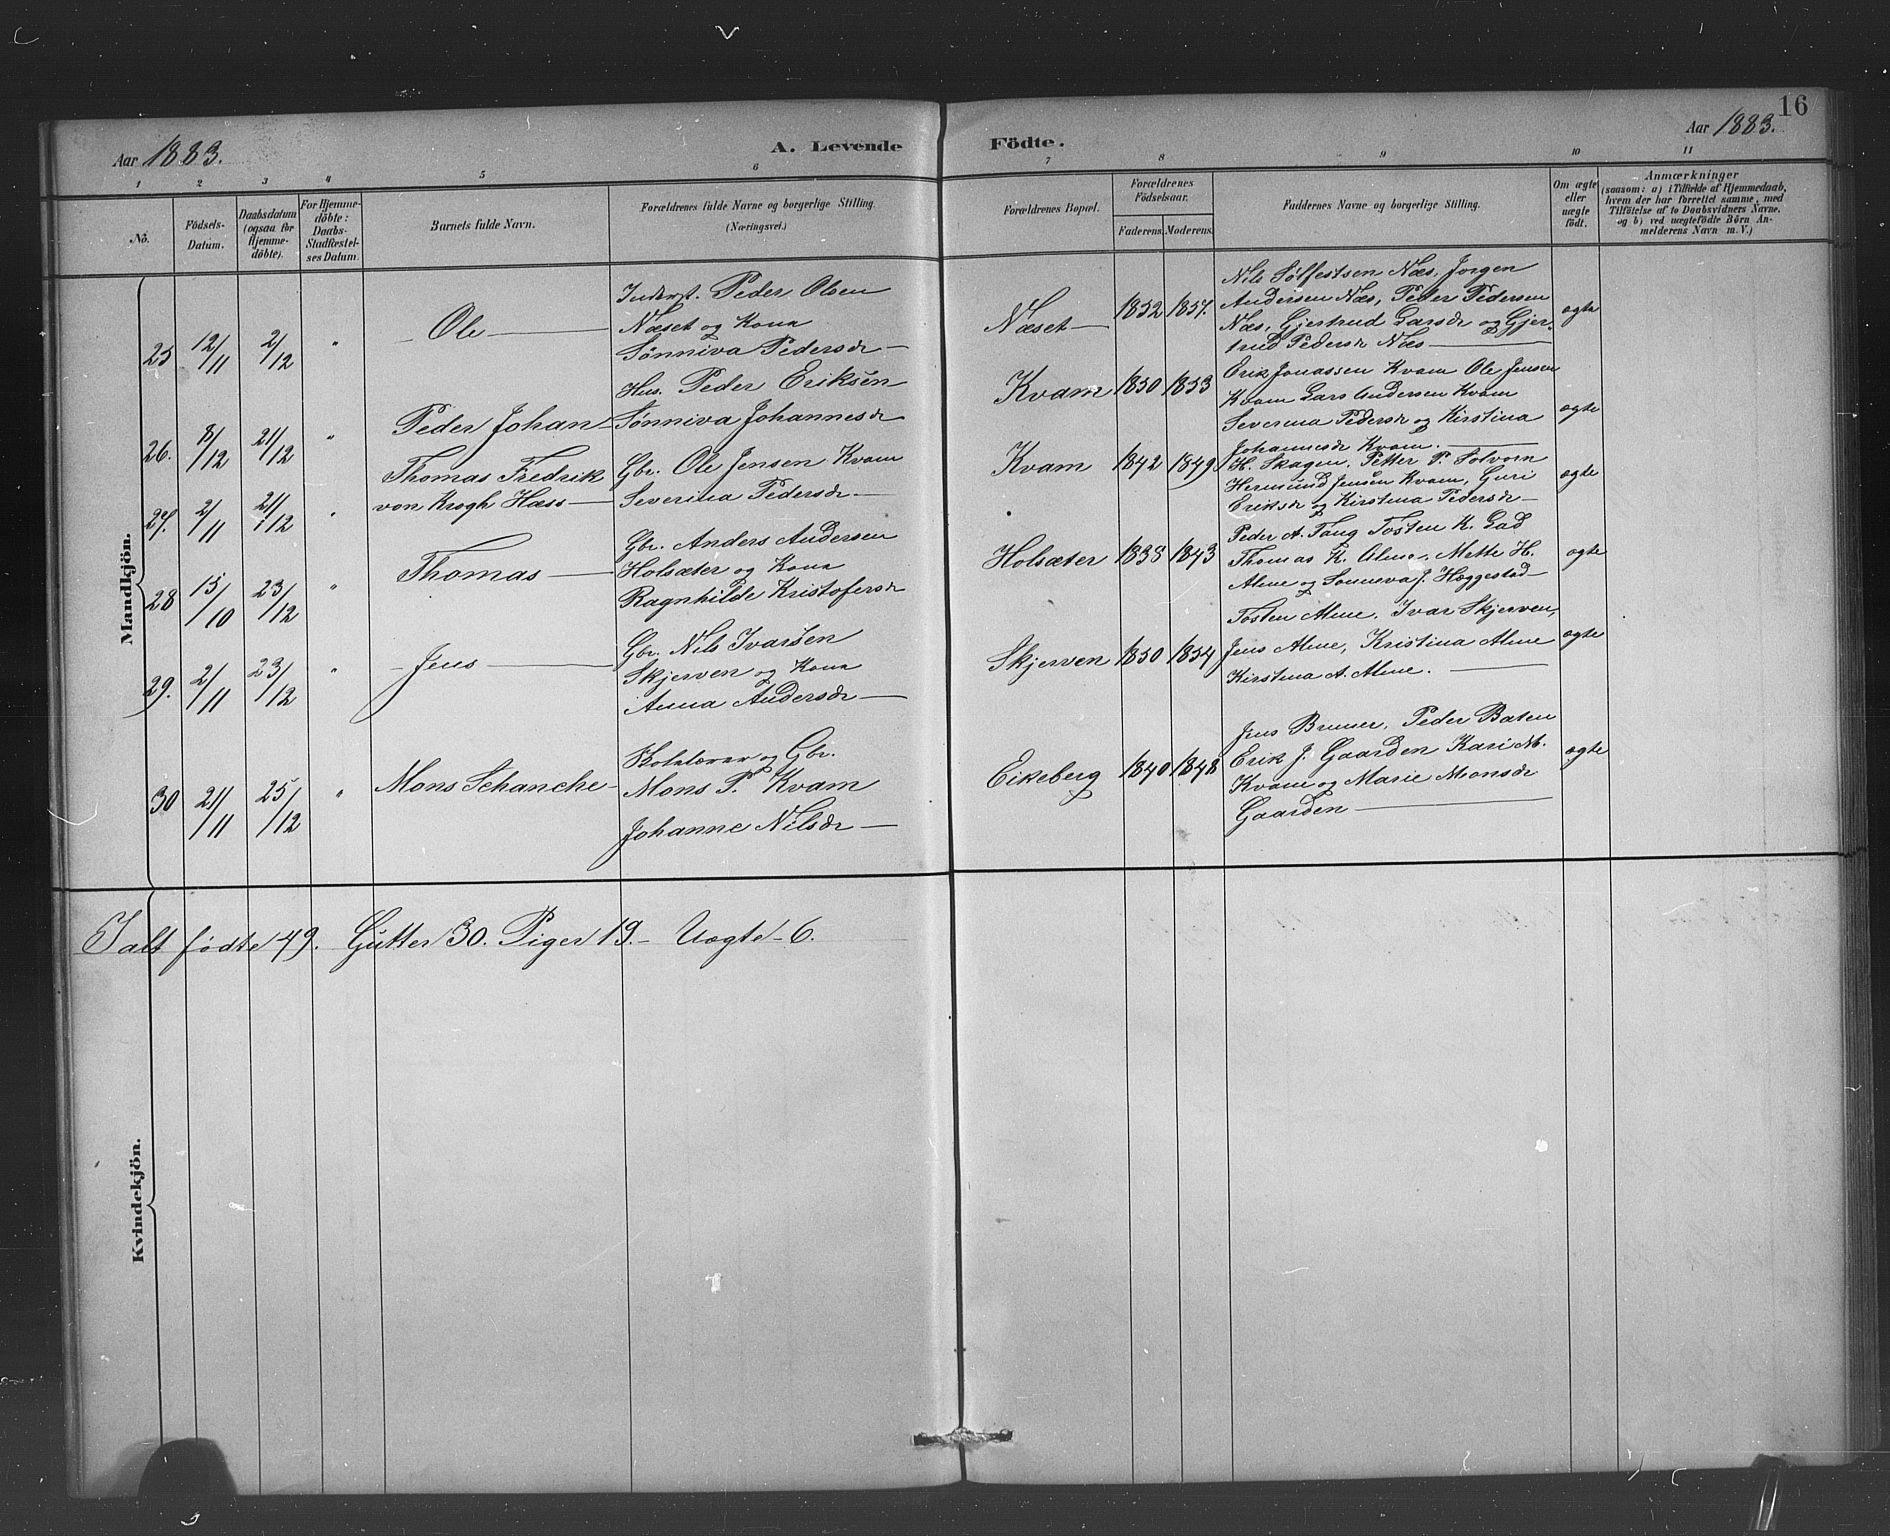 16
Aar 1883.
A. Levende Födte.
Aar 1883.
1 2 3 4 5 6 7 8 9 10 11
No.
Födsels-
Datum.
Daabsdatum
(ogsaa for
Hjemme-
döbte).
For Hjemme-
döbte:
Daabs-
Stadfæstel-
ses Datum.
Barnets fulde Navn.
Forældrenes fulde Navne og borgerlige Stilling.
(Næringsvei.)
Forældrenes Bopæl.
Forældrenes
Födselsaar.
Faderens. Moderens.
Faddernes Navne og borgerlige Stilling.
Om ægte
eller
uægte
födt.
Anmærkninger
(saasom: a) i Tilfælde af Hjemmedaab,
hvem der har forrettet samme, med
Tilföielse af to Daabsvidners Navne,
og b) ved uægtefödte Börn An-
melderens Navn m. V.)
Mandkjön.
25 12/11 2/12 " Ole
Inderst. Peder Olsen
Næset og Kona
Sønniva Pedersdr
Næset 1852 1857.
Nils Sølfestsen Næs, Jorgen
Andersen Næs, Peder Pedersen
Næs, Gjertrud Larsdr og Gjer-
trud Pedersdr Næs
ægte
26. 8/12 21/12 " Peder Johan
Hus. Peder Eriksen
Sønniva Johannesdr
Kvam 1850 1853
Erik Jonassen Kvam Ole Jensen
Kvam Lars Andersen Kvam
Severina Pedersdr og Kirstina
Johannesdr Kvam.
ægte
27. 2/11 21/12 " Thomas Fredrik
von Krogh Hæss
Gbr. Ole Jensen Kvam
Severina Pedersdr.
Kvam 1842 1849
H. Skagen, Petter P. Solvorn
Hermund Jensen Kvam, Guri
Eriksdr og Kirstina Pedersdr
ægte
28 15/10 23/12 " Thomas
Gbr. Anders Andersen
Holsæter og Kona
Ragnhilde Kristofersdr
Holsæter 1838 1843
Peder A. Fang Tosten K. Lad
Thomas K. Alme, Mette H.
Alme og Sonneva J. Hæggestad
ægte
29. 2/11 23/12 " Jens
Gbr. Nils Ivarsen
Skjerven og Kona
Anna Andersdr
Skjerven 1850 1854
Tosten Alme, Ivar Skjerven,
Jens Alme, Kristina Alme
Kirstina A. Alme.
ægte
30 21/11 25/12 " Mons Schanche
og Gbr.
Mons P. Kvam
Johanne Nilsdr
Eikeberg 1840 1848
Jens Bruner, Peder Baten
Erik J. Gaarden Kari M.
Kvam og Marie Monsdr
Gaarden
ægte
Ialt fødte 49. Gutter 30. Piger 19. Uægte 6.
Kvindekjön.